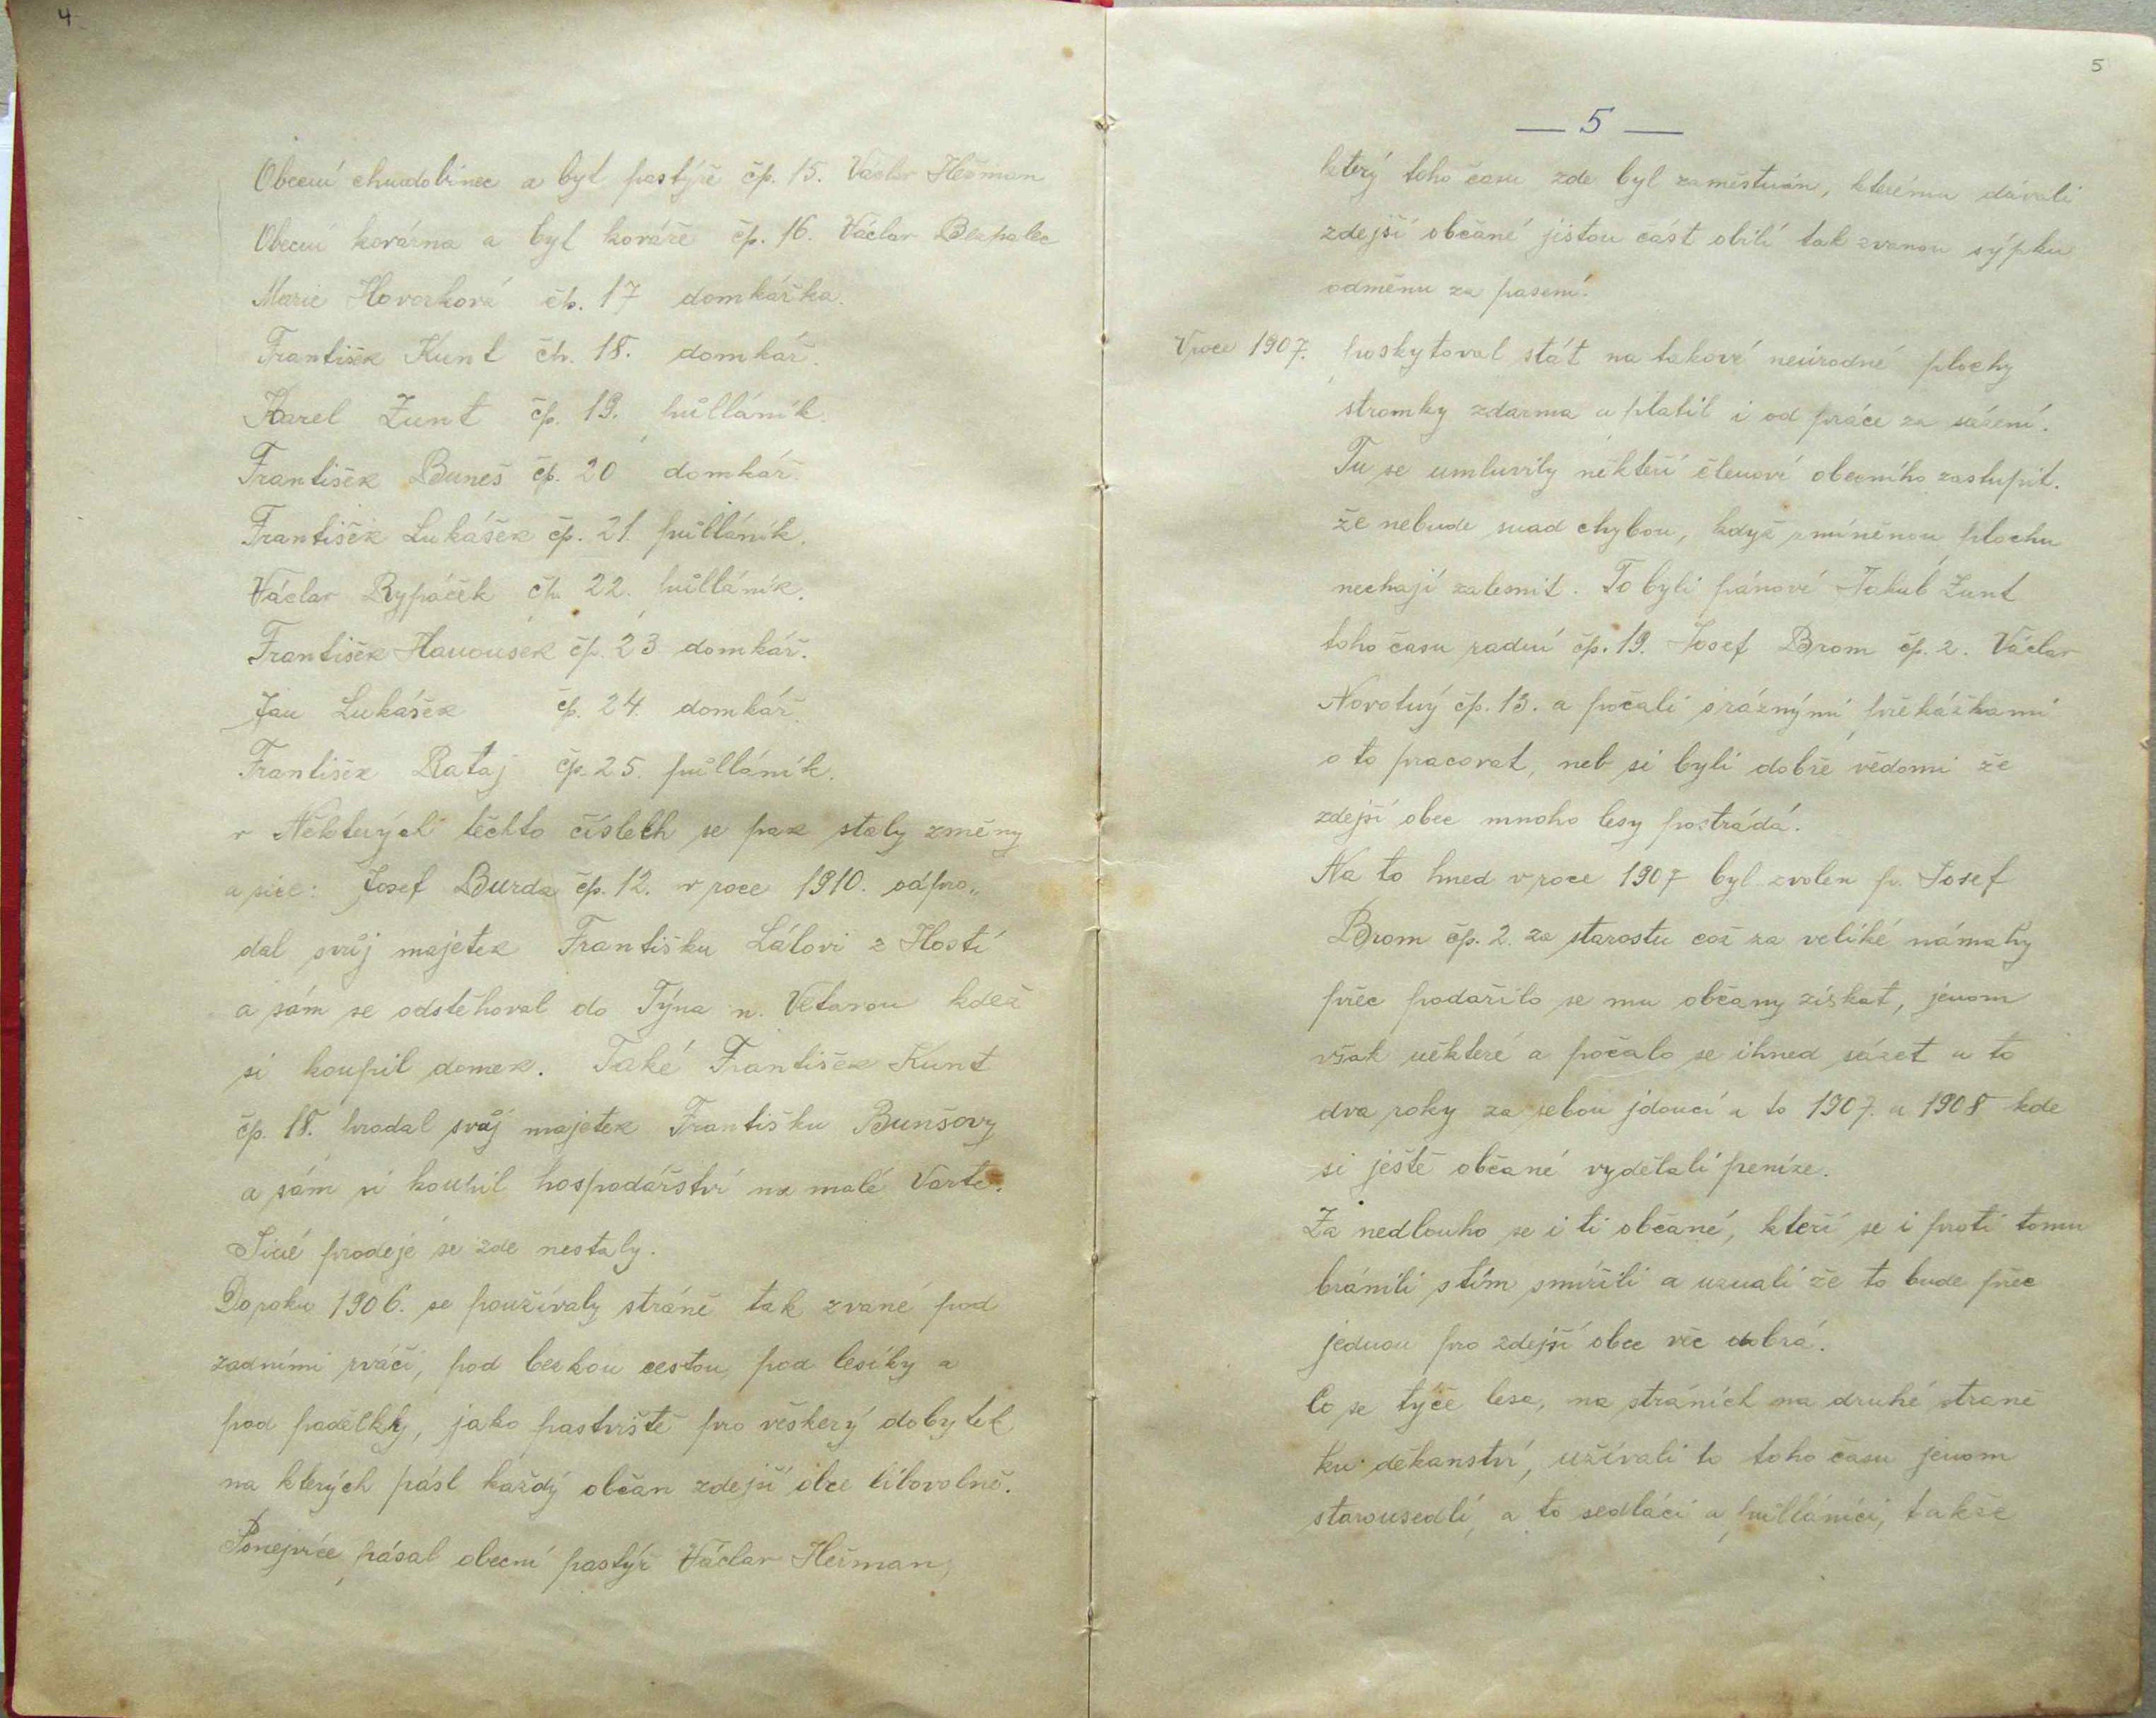 4
Obecní chudobinec a byt pastýře čp. 15. Václav Heřman
Obecní kovárna a byt kováře čp. 16. Václav Bezpalec
Marie Havorková čp. 17 domkářka.
František Kunt čp. 18. domkář.
Karel Žunt čp. 19. půlláník.
František Buneš čp. 20 domkář.
František Lukášek čp. 21. půlláník.
Václav Rypáček čp. 22. půlláník.
František Hanousek čp. 23 domkář.
Jan Lukášek čp. 24. domkář.
František Rataj čp. 25. půlláník.
v Některých těchto číslech se pak staly změny
a sice: Josef Burda čp. 12. v roce 1910. odpro„
dal svůj majetek Františku Lálovi z Hostí
a sám se odstěhoval do Týna n. Vltavou kdež
si koupil domek. Také František Kunt
čp. 18. prodal svůj majetek Františku Bunšovy
a sám si koupil hospodářství na malé Vartě.
Jiné prodeje se zde nestaly.
Do roku 1906. se používaly stráně tak zvané pod
zadními pod cestou, pod lesíky a
pod padělky, jako pastviště pro veškerý dobytek
na kterých pásl každý občan zdejší obce libovolně.
Ponejvíce pásal obecní pastýř Václav Heřman,
5
— 5 —
který toho času zde byl zaměstnán, kterému dávali
zdejší občané jistou část obilí tak zvanou sýpku
odměnu za pasení.
V roce 1907. poskytoval stát na takové neúrodné plochy
stromky zdarma a platil i od práce za sázení.
Tu se umluvily někteří členové obecního zastupit.
že nebude snad chybou, když zmíněnou plochu
nechají zalesnit. To byli pánové Jakub Žunt
toho času radní čp. 19. Josef Brom čp. 2. Václav
Novotný čp. 13. a počali s různými překážkami
o to pracovat, neb si byli dobře vědomi že
zdejší obec mnoho lesy postrádá.
Na to hned v roce 1907 byl zvolen p. Josef
Brom čp. 2. za starostu což za veliké námahy
přec podařilo se mu občany získat, jenom
však některé a počalo se ihned sázet a to
dva roky za sebou jdoucí a to 1907. a 1908 kde
si ještě občané vydělali peníze.
Za nedlouho se i ti občané, kteří se i proti tomu
bránili stím smířili a uznali že to bude přec
jednou pro zdejší obec věc dobrá.
Co se týče lesa, na stráních na druhé straně
ku děkanství, užívali to toho času jenom
starousedlí, a to sedláci a půlláníci, takže